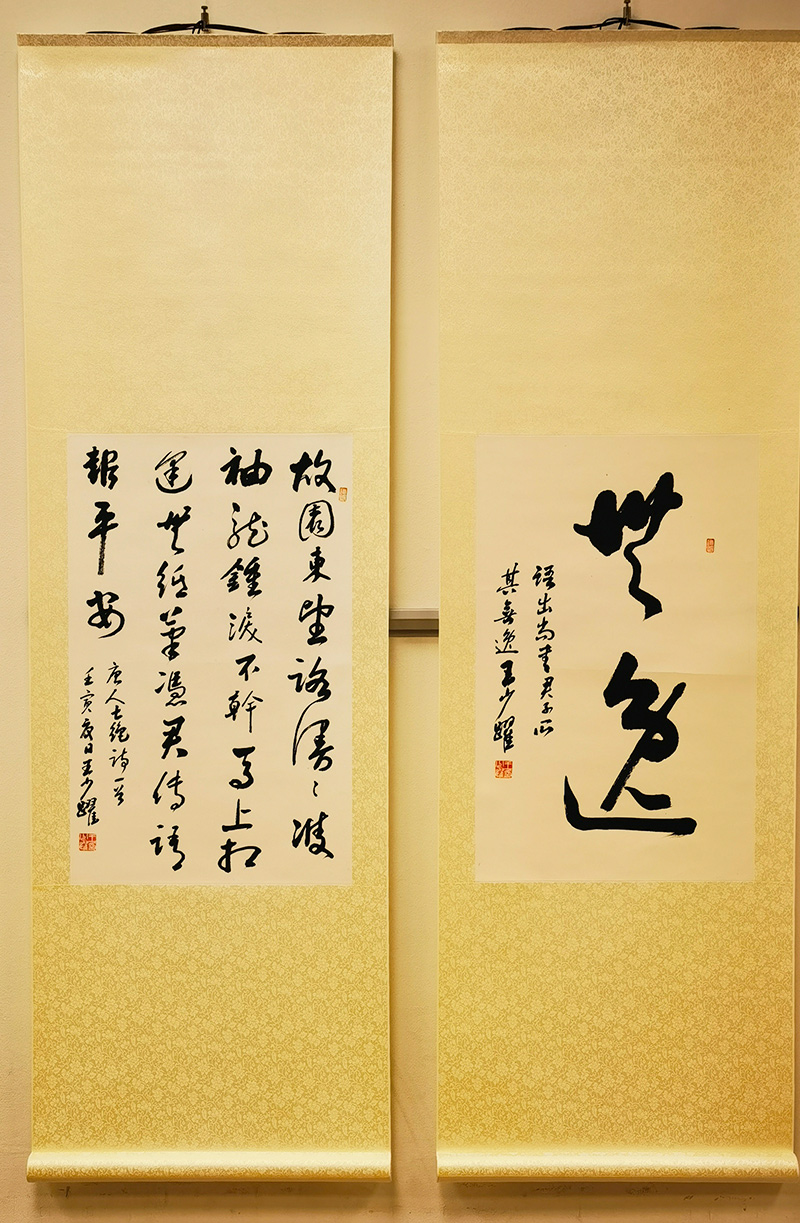 無逸
語出尚書君子所
其無逸王少躍
故園東望路漫〻雙
袖龍鍾淚不幹馬上相
逢無紙筆憑君傳語
報平安
唐人七絕詩一首
壬寅夏日王少躍